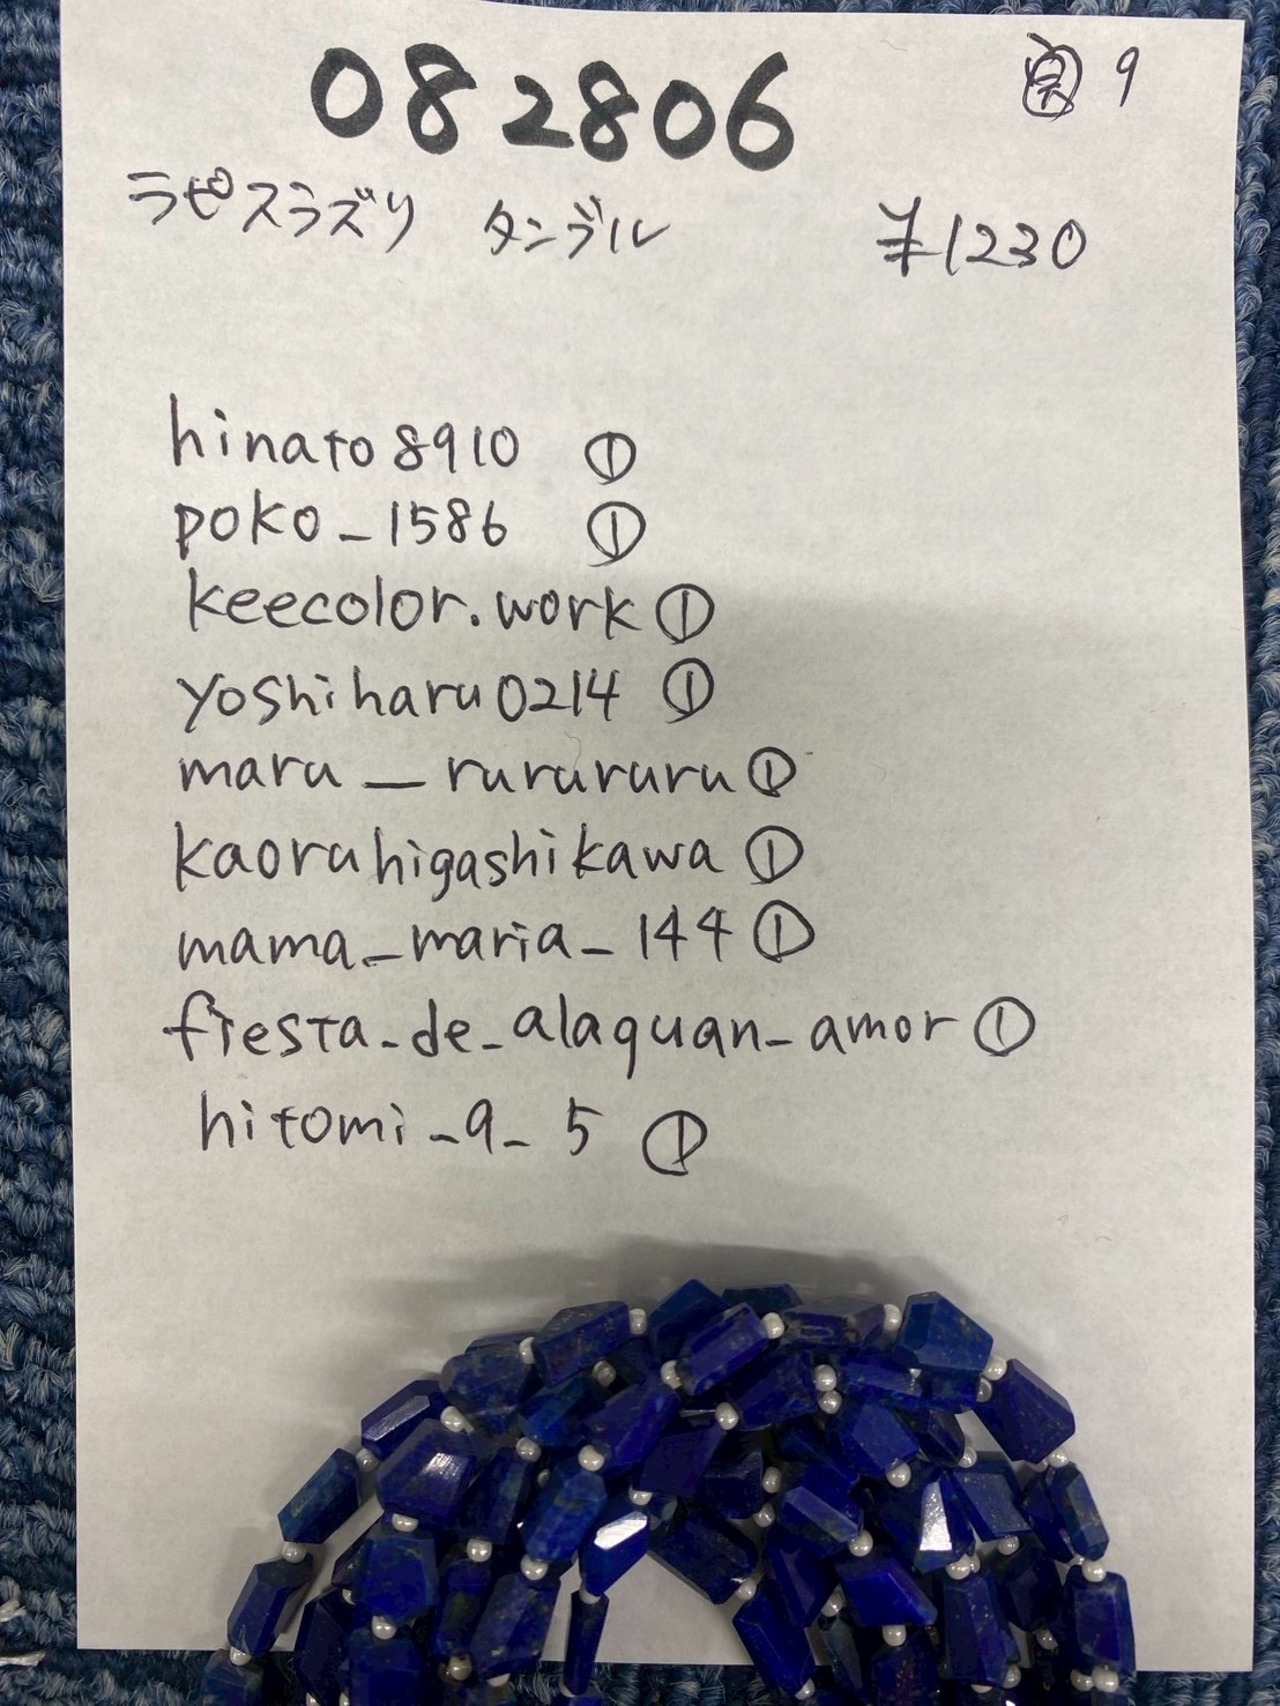 082806 9
ラピスラズリ タンブル ¥1230
hinato8910 ①
poko_1586 ①
keecolor.work ①
yoshiharu0214 ①
maru__rurururu ①
kaoruhigashikawa ①
mama_maria_144 ①
fiesta_de_alaquan_amor ①
hitomi_9_5 ①